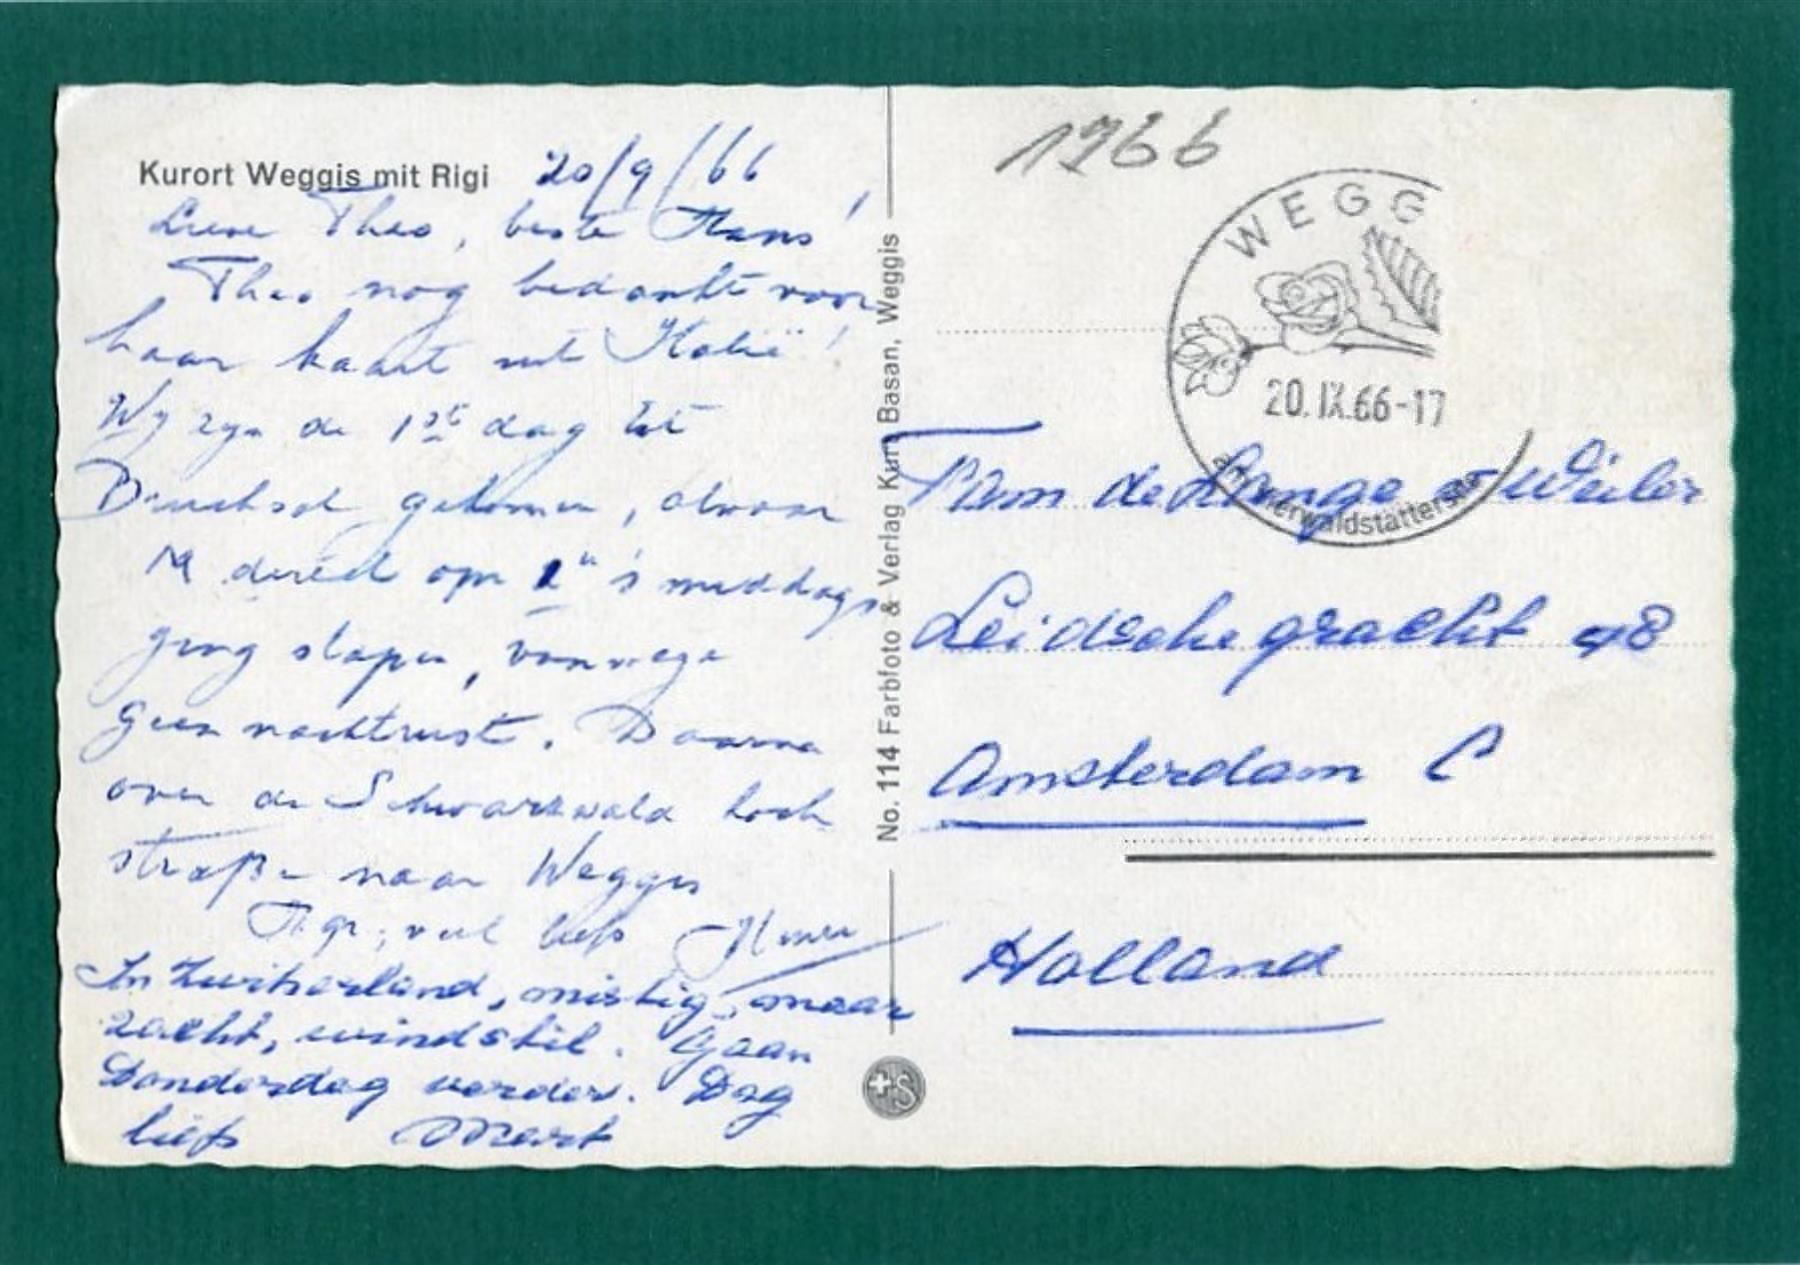 Kurort Weggis mit Rigi 20/9/66
Lieve Theo, beste Hans!
Theo nog bedankt voor
haar kaart uit Italië!
Wy zyn de 1ste dag tot
Bruchsal gekomen, alwaar
M direct om 2u 's middags
ging slapen, vanwege
geen nachtrust. Daarna
over de Schwarzwald hoch
straße naar Weggis
H gr, veel liefs
In Zwitserland, mistig, maar
zacht, windstil. Gaan
Donderdag verder. Dag
liefs Mart
No. 114 Farbfoto & Verlag Kurt Basan, Weggis
+S
1966
WEGG
20.IX.66-17
am Vierwaldstättersee
Fam de Lange Weiler
Leidschegracht 48
Amsterdam C
Holland